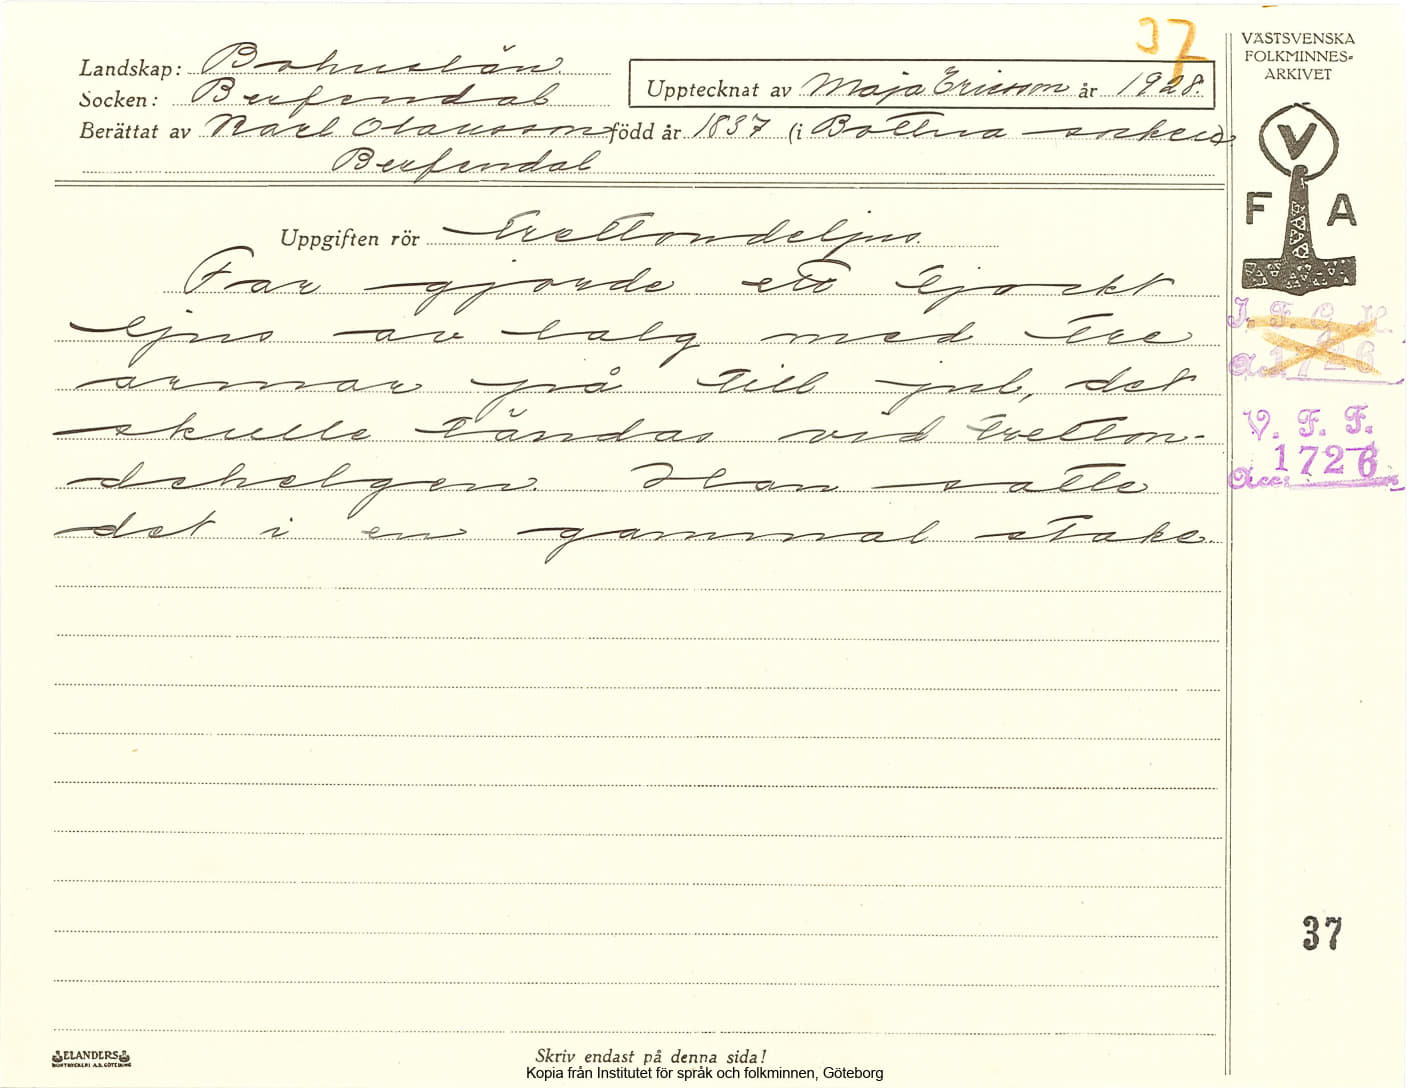 37
Landskap: Bohuslän.
Socken: Berfendal
Upptecknat av Maja Ericson år 1928.
Berättat av Karl Olausson född år 1837 (i Bottna socken)
Berfendal
Uppgiften rör Trettondeljus.
Far gjorde ett tjockt
ljus av talg med tre
armar på till jul, det
skulle tändas vid tretton-
dehelgen Han satte
det i en gammal stake.
VÄSTSVENSKA
FOLKMINNES-
ARKIVET
V
F A
I. F. G. H.
Acc. 1726
V. F. F.
Acc: 1726
37
ELANDERS
BOKTRYCKERI A.B. GÖTEBORG
Skriv endast på denna sida!
Kopia från Institutet för språk och folkminnen, Göteborg